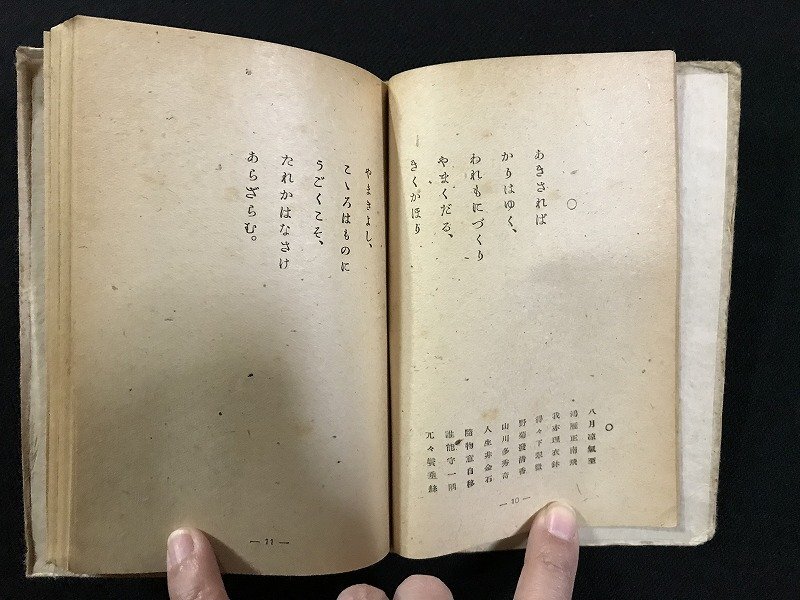 〇
あきされば
かりはゆく、
われもにづくり
やまくだる、
きくかほり
〇
八月涼氣至
鴻雁正南飛
我亦理衣鉢
得々下翠微
野菊發清香
山川多秀奇
人生非金石
隨物意自移
誰能守一隅
兀々鬢垂絲
— 10 —
やまきよし、
こゝろはものに
うごくこそ、
たれかはなさけ
あらざらむ。
— 11 —